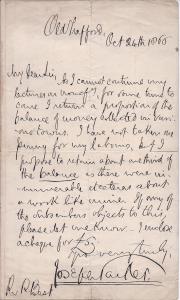 Old Trafford,
Oct 24th 1865
My dear Sir, As I cannot continue my
lectures on for some time to
come I return a proportion of the
balance of money collected in
towns. I have not taken one
penny for my labours, but I
propose to retain about one third of
the balance as there were
about
a work like mine. If any of
the subscribers objects to this,
please let me know. I enclose
a cheque for £5
Yours very truly,
Joseph
Rev R Best